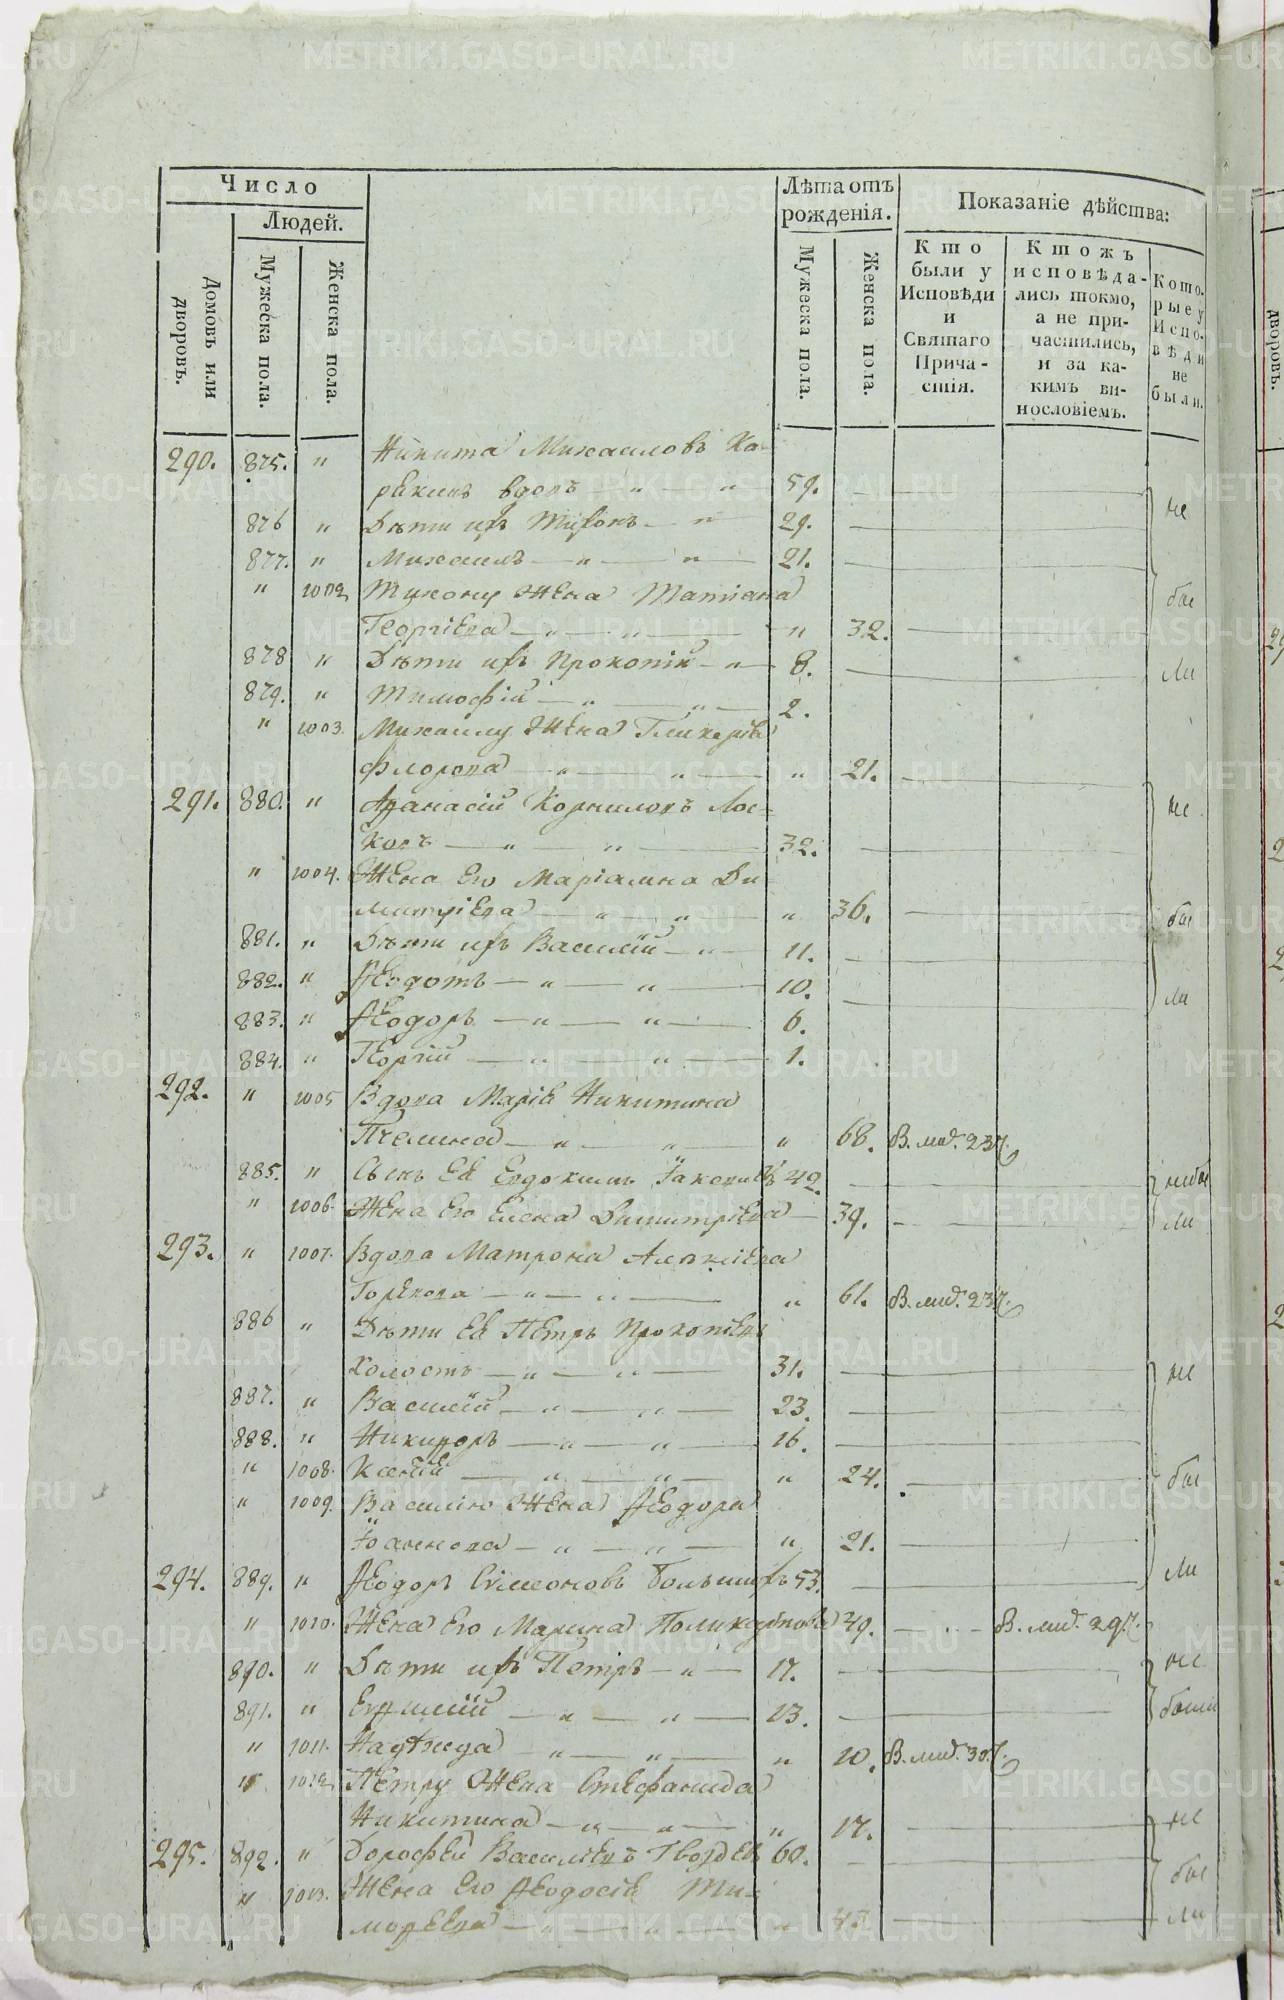 Число
Людей.
Домовъ или дворовъ.
Мужеска пола.
Женска пола.
Лѣта отъ рожденія.
Мужеска пола.
Женска пола.
Показаніе дѣйства:
Кто были у Исповѣди и Святаго Причастія.
Ктожъ исповѣдались токмо, а не причастились, и за какимъ винословіемъ.
Которые у Исповѣди не были.
290. 875. " Никита Михаиловъ Ка-
рѣкинъ вдовъ — " — " 59.
876 " Дѣти ихъ Тихонъ — " 29. не
877. " Михаилъ — " — " — 21.
" 1002 Тихону Жена Татіана бы
Георгіева — " — " — " 32.
878 " Дѣти ихъ Прокопій — " — 8. ли
879. " Тимофій — " — " — 2.
" 1003. Михаилу Жена Гликерія
Флорова — " — " — " 21.
291. 880. " Афанасій Корниловъ Лос- не
ковъ — " — " — 32.
" 1004. Жена Его Маріамна Ди-
митріева — " — " — " 36. бы
881. " Дѣти ихъ Василій — " — 11.
882. " Ѳеодотъ — " — " — 10. ли
883. " Ѳеодоръ — " — " — 6.
884. " Георгій — " — " — 1.
292. " 1005 Вдова Марія Никитина
Пчелина — " — " — " 68. В. лид. 237.
885. " Сынъ Ея Евдокимъ Іаковлевъ 42. небы
" 1006. Жена Его Елена Димитріева — 39. ли
293. " 1007. Вдова Матрона Алексіева
Горѣхова — " — " — " 61. В. лид. 237.
886 " Дѣти Ея Петръ Прокопіевъ
холостъ — " — " — 31. не
887. " Василій — " — " — 23.
888. " Никифоръ — " — " — 16.
" 1008. Ксенія — " — " — " 24. бы
" 1009. Василію Жена Ѳеодора
Іоаннова — " — " — " 21.
294. 889. " Ѳеодоръ Сѵмеоновъ Большихъ 53. ли
" 1010. Жена Его Марина Поликарпова 49. В. лид. 297.
890. " Дѣти ихъ Петръ — " — 17. не
891. " Евфимій — " — " — 13. были
" 1011. Надежда — " — " — " 10. В. лид. 307.
" 1012 Петру Жена Стефанида
Никитина — " — " — " 17. не
295. 892. " Дорофей Василіевъ Гвоздевъ 60.
" 1013. Жена Его Ѳеодосія Ти- бы
мофеева — " — " — " ли
METRIKI.GASO-URAL.RU